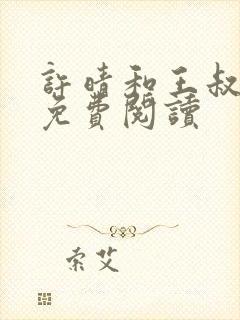 許晴和王叔
免費閱讀
索艾